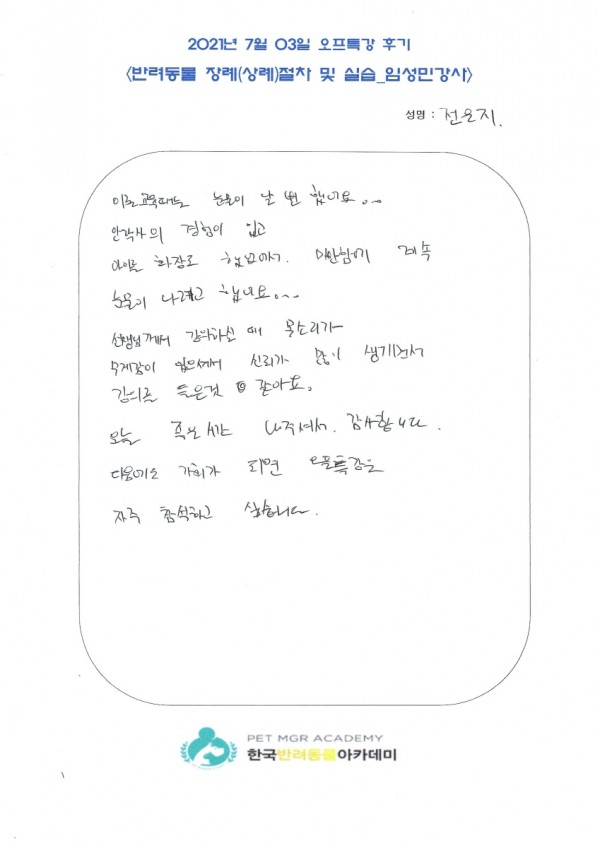 2021년 7월 03일 오프특강 후기
<반려동물 장례(상례)절차 및 실습_임성민강사>
성명 : 전은지.
이론교육때는 눈물이 날 뻔 했네요...
안락사의 경험이 있고
아이를 화장도 했었어서. 미안함에 계속
눈물이 나려고 했네요...
선생님께서 강의하실 때 목소리가
무게감이 있으셔서 신뢰가 많이 생기면서
강의를 들은것 같아요.
오늘 좋은 시간 나눠주셔서. 감사합니다.
다음에도 기회가 되면 오프특강을
자주 참석하고 싶습니다.
PET MGR ACADEMY
한국반려동물아카데미